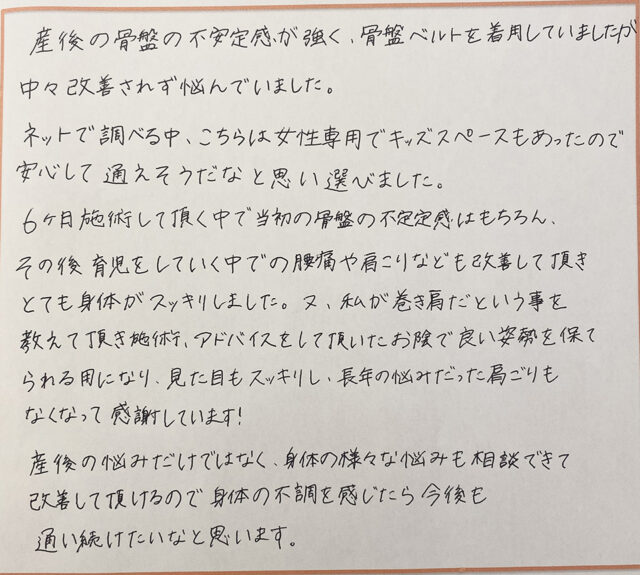 産後の骨盤の不安定感が強く、骨盤ベルトを着用していましたが
中々改善されず悩んでいました。
ネットで調べる中、こちらは女性専用でキッズスペースもあったので
安心して通えそうだなと思い選びました。
6ヶ月施術して頂く中で当初の骨盤の不定定感はもちろん、
その後育児をしていく中での腰痛や肩こりなども改善して頂き
とても身体がスッキリしました。又、私が巻き肩だという事を
教えて頂き施術、アドバイスをして頂いたお陰で良い姿勢を保て
られる用になり、見た目もスッキリし、長年の悩みだった肩ごりも
なくなって感謝しています!
産後の悩みだけではなく、身体の様々な悩みも相談できて
改善して頂けるので身体の不調を感じたら今後も
通い続けたいなと思います。